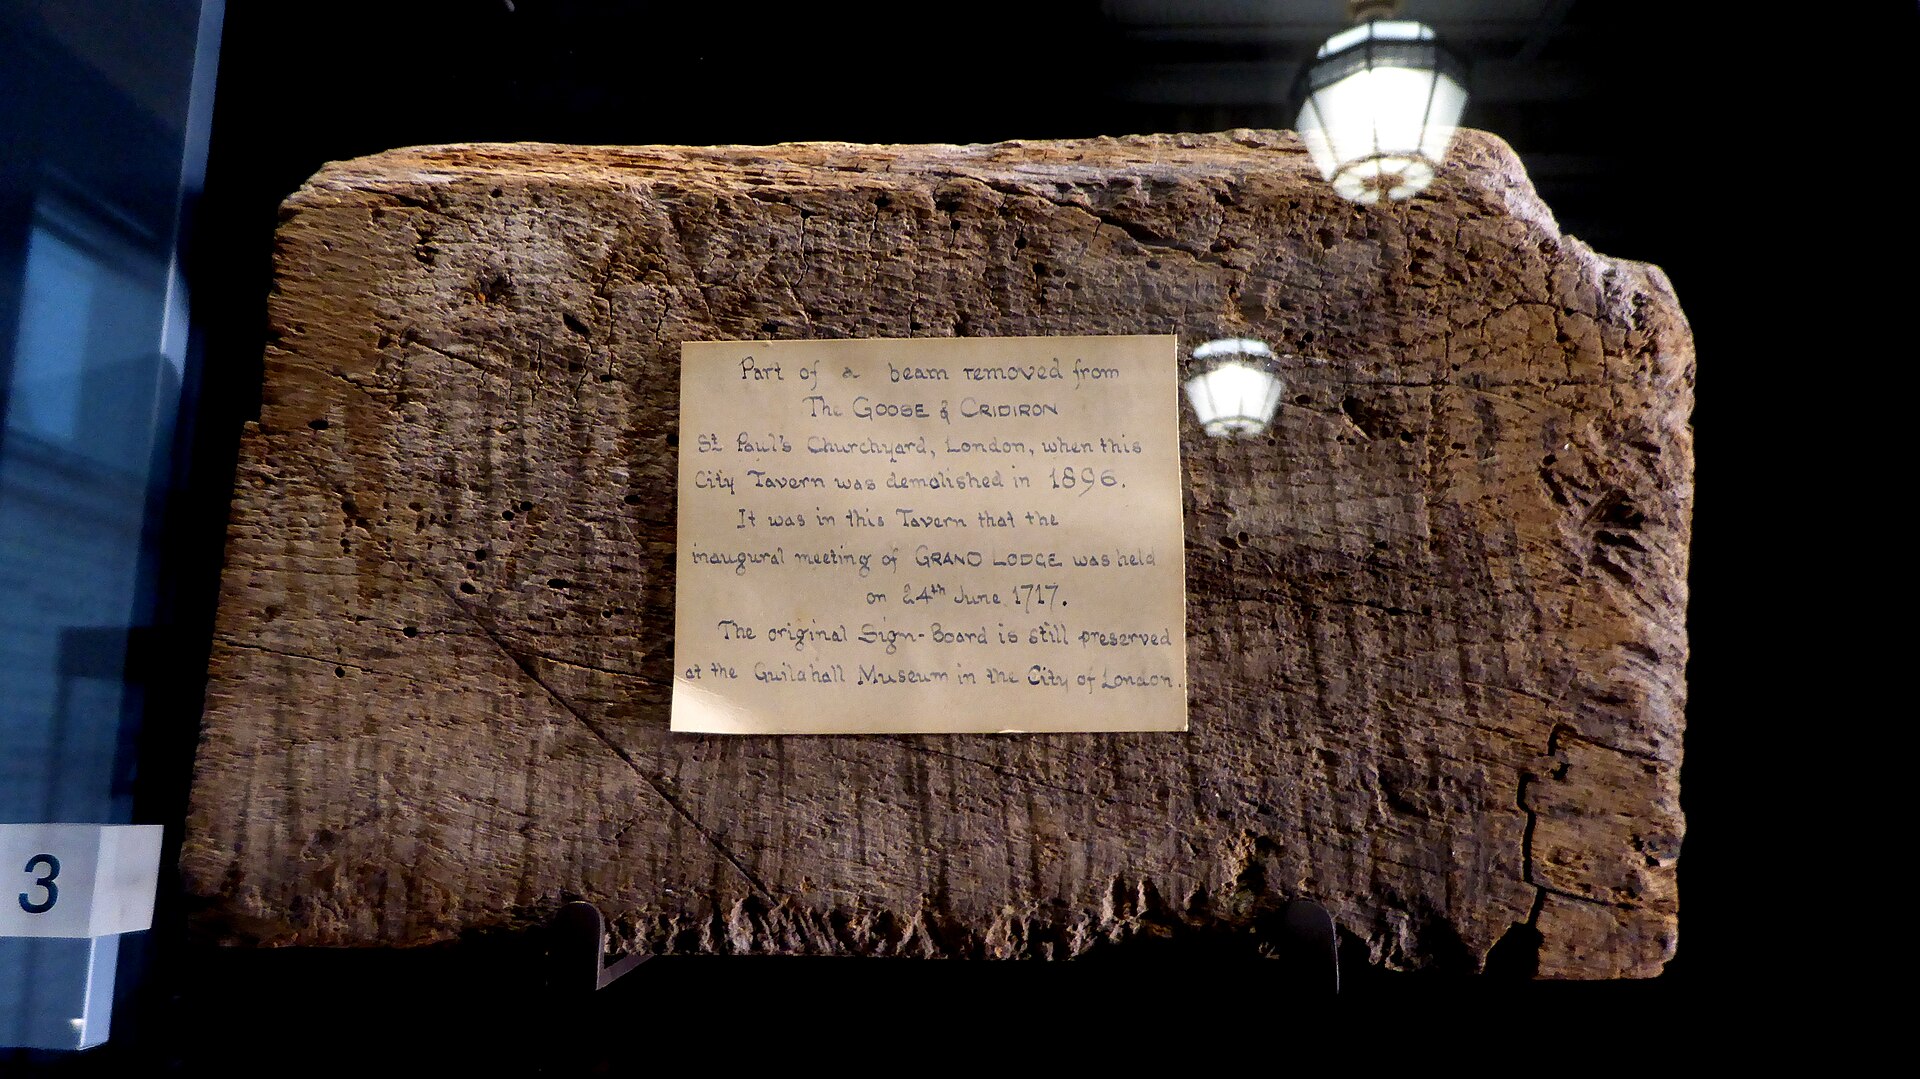 Part of a beam removed from
The GOOSE & GRIDIRON
St. Paul's Churchyard, London, when this
City Tavern was demolished in 1896.
It was in this Tavern that the
inaugural meeting of GRAND LODGE was held
on 24th June 1717.
The original Sign-Board is still preserved
at the Guildhall Museum in the City of London.
3